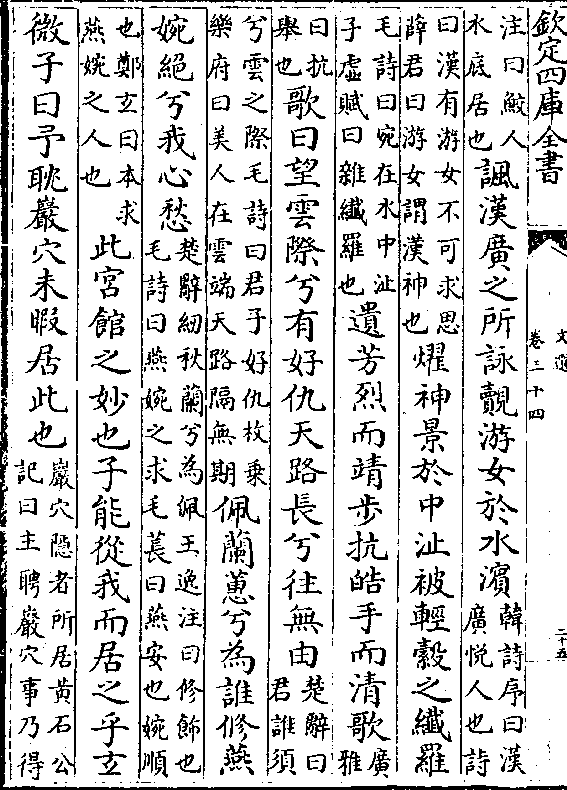 欽定四庫全書
文選
卷三十四
二十五
注曰鮫人
水底居也
諷漢廣之所詠覿游女於水濱
韓詩序曰漢
廣悅人也詩
曰漢有游女不可求思
薛君曰游女謂漢神也
燿神景於中沚被輕縠之纖羅
毛詩曰宛在水中沚
子虛賦曰雜纖羅也
遺芳烈而靖步抗皓手而清歌
廣
雅
曰抗
舉也
歌曰望雲際兮有好仇天路長兮往無由
楚辭曰
君誰須
兮雲之際毛詩曰君子好仇枚乗
樂府曰美人在雲端天路隔無期
佩蘭蕙兮為誰修燕
婉絕兮我心愁
楚辭紉秋蘭兮為佩王逸注曰修飾也
毛詩曰燕婉之求毛萇曰燕安也婉順
也鄭玄曰本求
燕婉之人也
此宮館之妙也子能從我而居之乎玄
微子曰予耽巖穴未暇居此也
巖穴隱者所居黃石公
記曰主聘巖穴事乃得